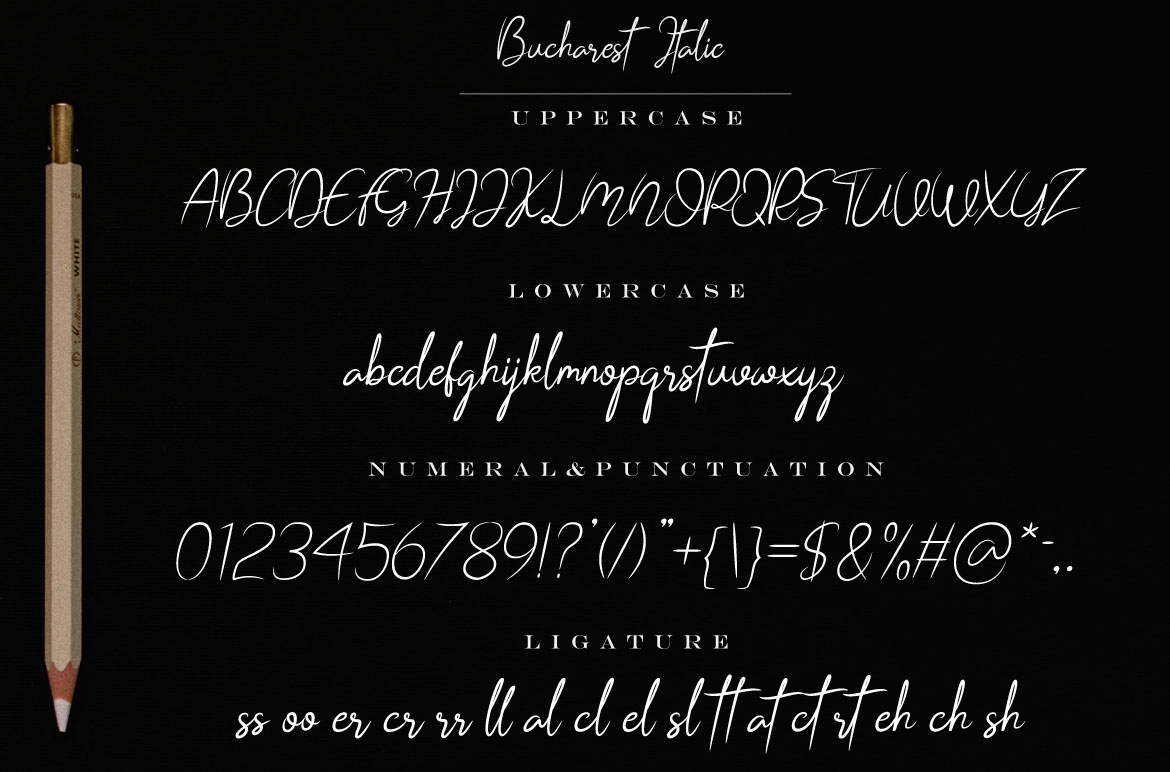 Bucharest Italic
UPPERCASE
ABCDEFGHIJKLMNOPQRSTUVWXYZ
LOWERCASE
abcdefghijklmnopqrstuvwxyz
NUMERAL&PUNCTUATION
0123456789!?'(/)"+{\}=$&%#@*-,.
LIGATURE
ss oo er cr rr ll al cl el sl tt at ct rt eh ch sh
WHITE